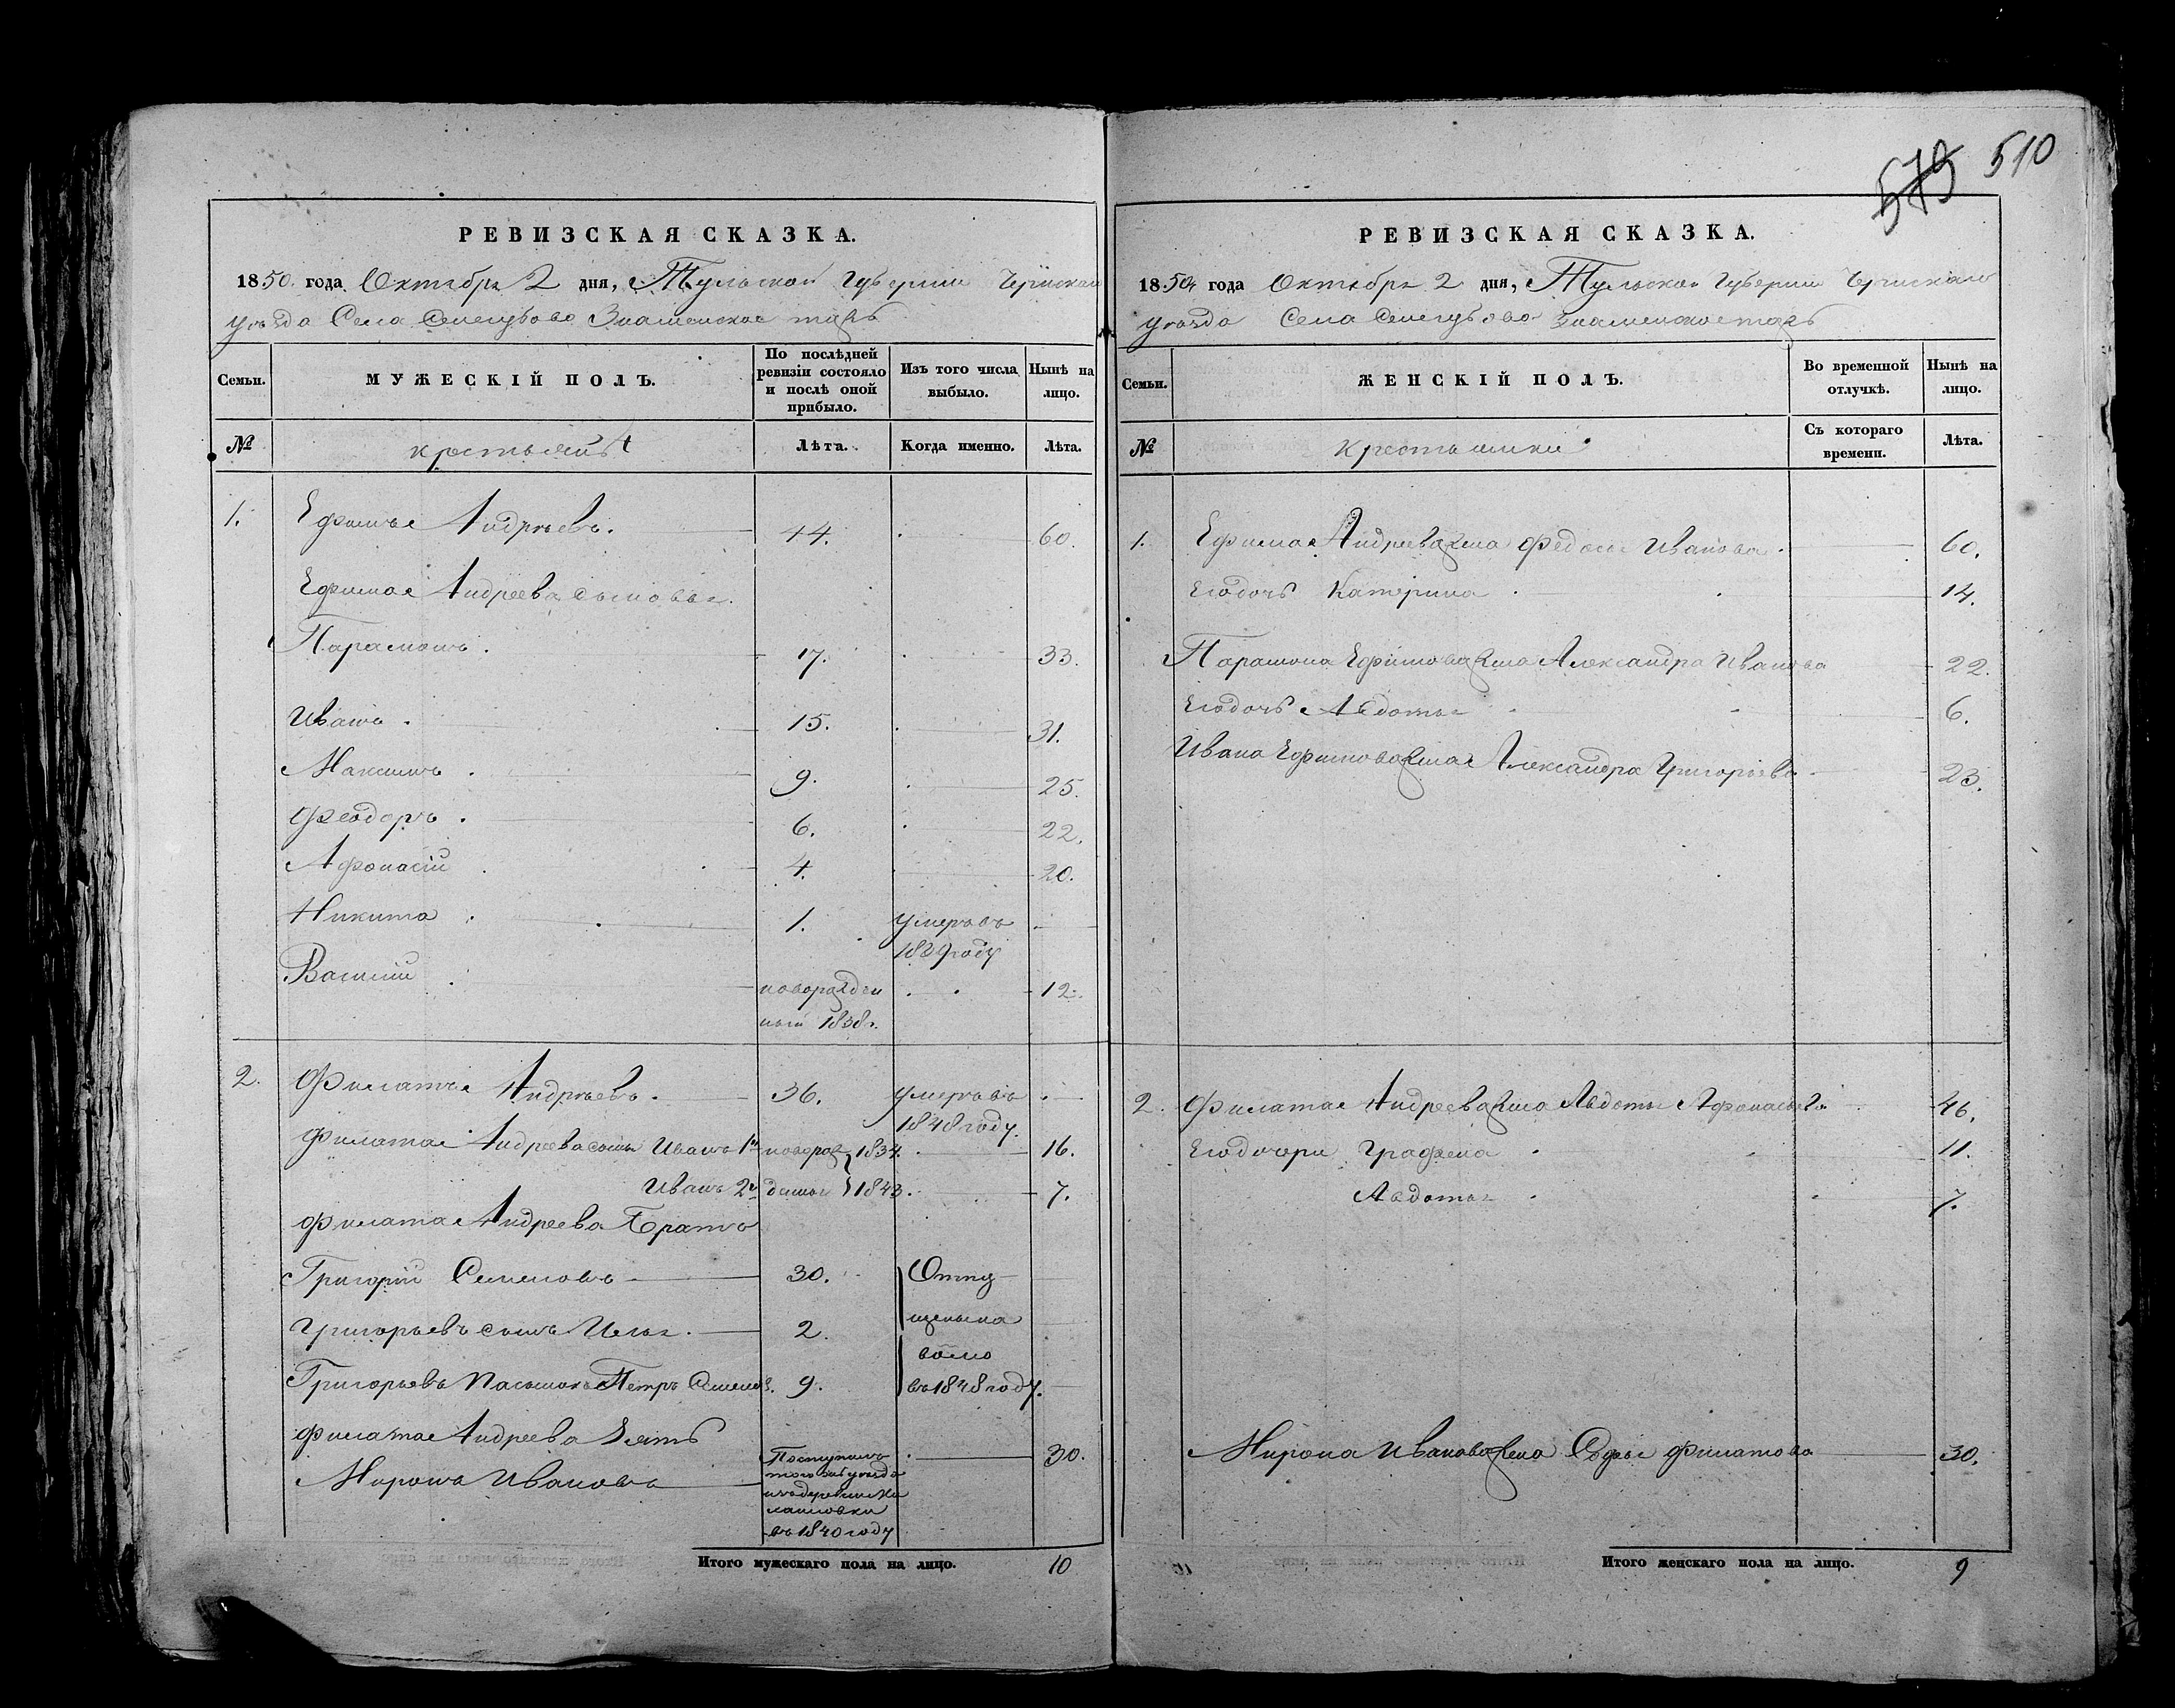 579 510
РЕВИЗСКАЯ СКАЗКА.
1850 года Октября 2 дня, Тульской Губернии Чернскаго
уезда Села Знаменское тожъ
Семьи.
МУЖЕСКІЙ ПОЛЪ.
По послѣдней ревизіи состояло и послѣ оной прибыло.
Изъ того числа выбыло.
Нынѣ на лицо.
№
крестьянъ
Лѣта.
Когда именно.
Лѣта.
1. Ефимъ Андреевъ. 44. 60.
Ефима Андреева сыновья.
Парамонъ. 17. 33.
Иванъ. 15. 31.
Максимъ. 9. 25.
Феодоръ. 6. 22.
Афонасій 4. 20.
Никита 1. умеръ въ
году
Василій новорожден 12.
ный 1838г.
2. Филатъ Андреевъ. 36. умеръ въ
1848 году.
Филата Андреева сынъ Иванъ 1й новорож 1834. 16.
Иванъ 2й денные 1843. 7.
Филата Андреева Братъ
Григорій Семеновъ 30. Отпу
Григорьевъ сынъ Илья. 2. щены на
волю
Григорьевъ Племянъ Петръ Семенов. 9. въ 1848 году.
Филата Андреева Зять
Миронъ Ивановъ Поступилъ 30.
тогожъ уезда
изъ деревни
въ 1840 году
Итого мужескаго пола на лицо. 10
РЕВИЗСКАЯ СКАЗКА.
1850 года Октября 2 дня, Тульской Губернии Чернскаго
уезда Села Знаменское тожъ
Семьи.
ЖЕНСКІЙ ПОЛЪ.
Во временной отлучкѣ.
Нынѣ на лицо.
№
Крестьянки
Съ котораго времени.
Лѣта.
1. Ефима Андреева жена Федосья Иванова. 60.
Его дочь Катерина 14.
Парамона Ефимова жена Александра Иванова 22.
Его дочь Авдотья 6.
Ивана Ефимова жена Александра Григорьева 23.
2. Филата Андреева жена Авдотья Афонасьева 46.
Его дочери Графена 11.
Авдотья 7.
Мирона Иванова жена Софья Филатова 30.
Итого женскаго пола на лицо. 9